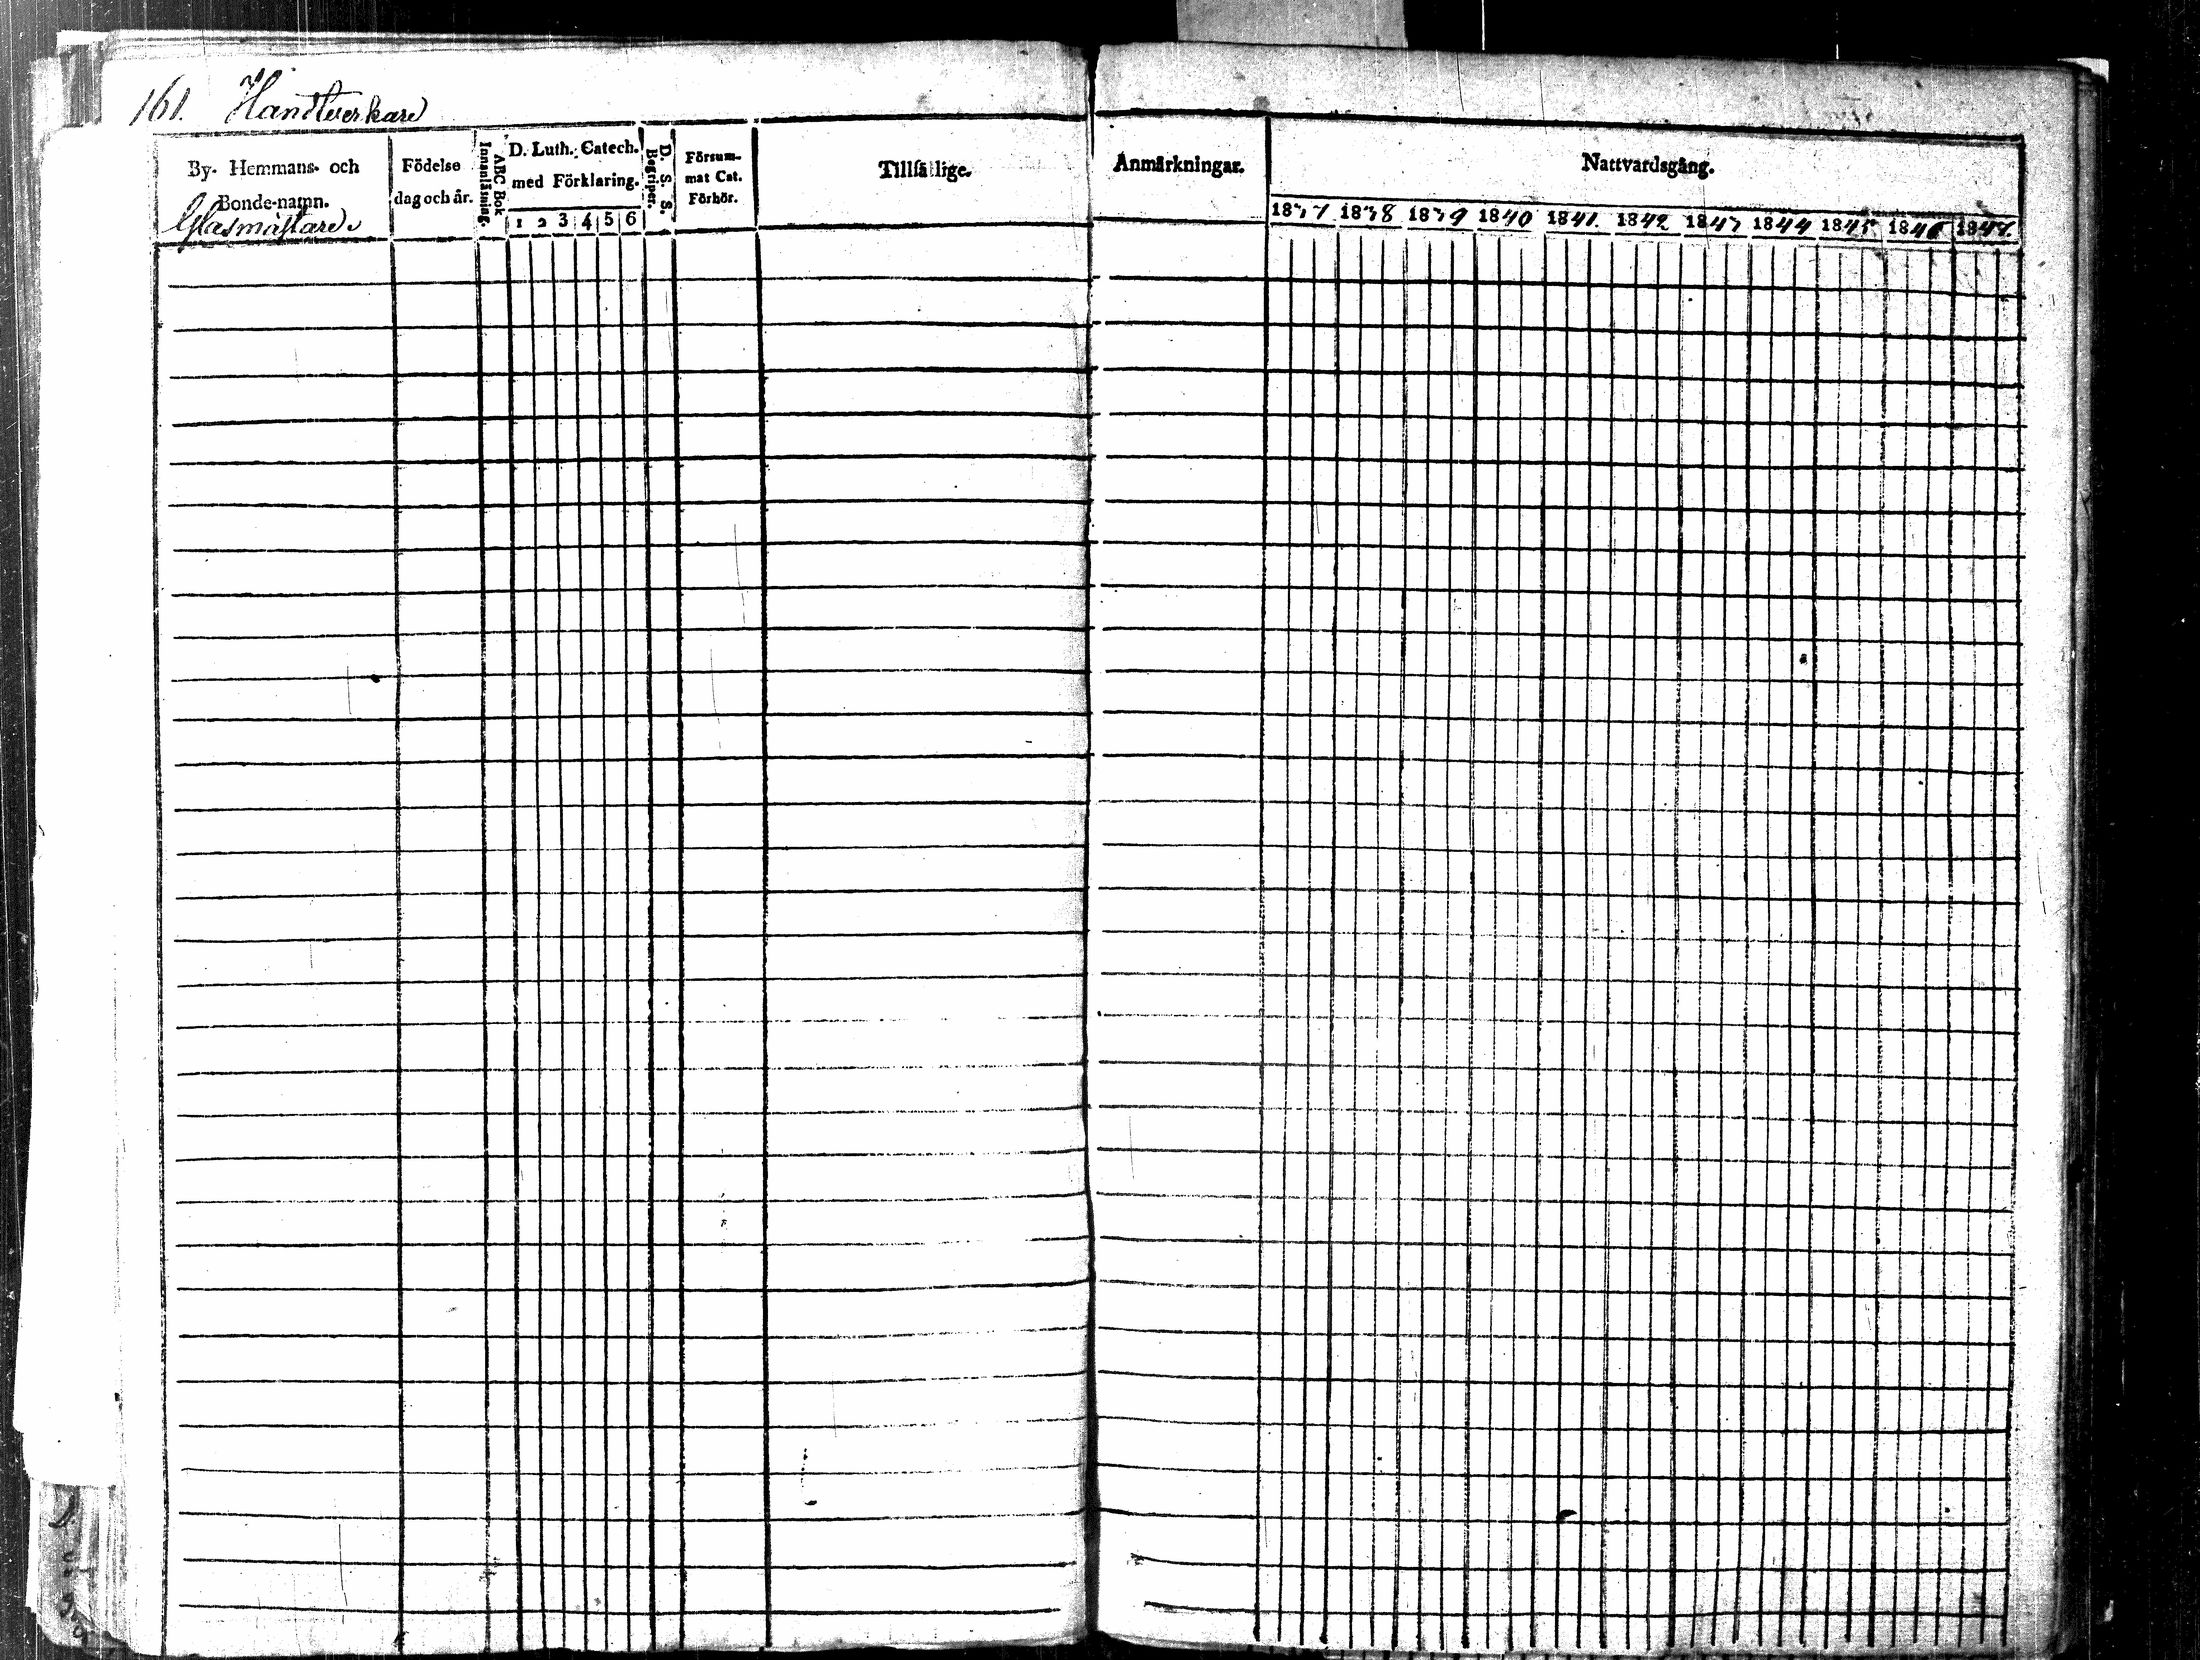 161. Handtverkare
By- Hemmans- och
Bonde-namn.
Glasmästare
Födelse
dag och år.
ABC Bok
Innanläsning.
D. Luth. Catech.
med Förklaring.
1 2 3 4 5 6
D. S. S.
Begriper.
Försum-
mat Cat.
Förhör.
Tillfällige.
Anmärkningar.
Nattvardsgång.
1837 1838 1839 1840 1841. 1842 1843 1844 1845 1846 1847.